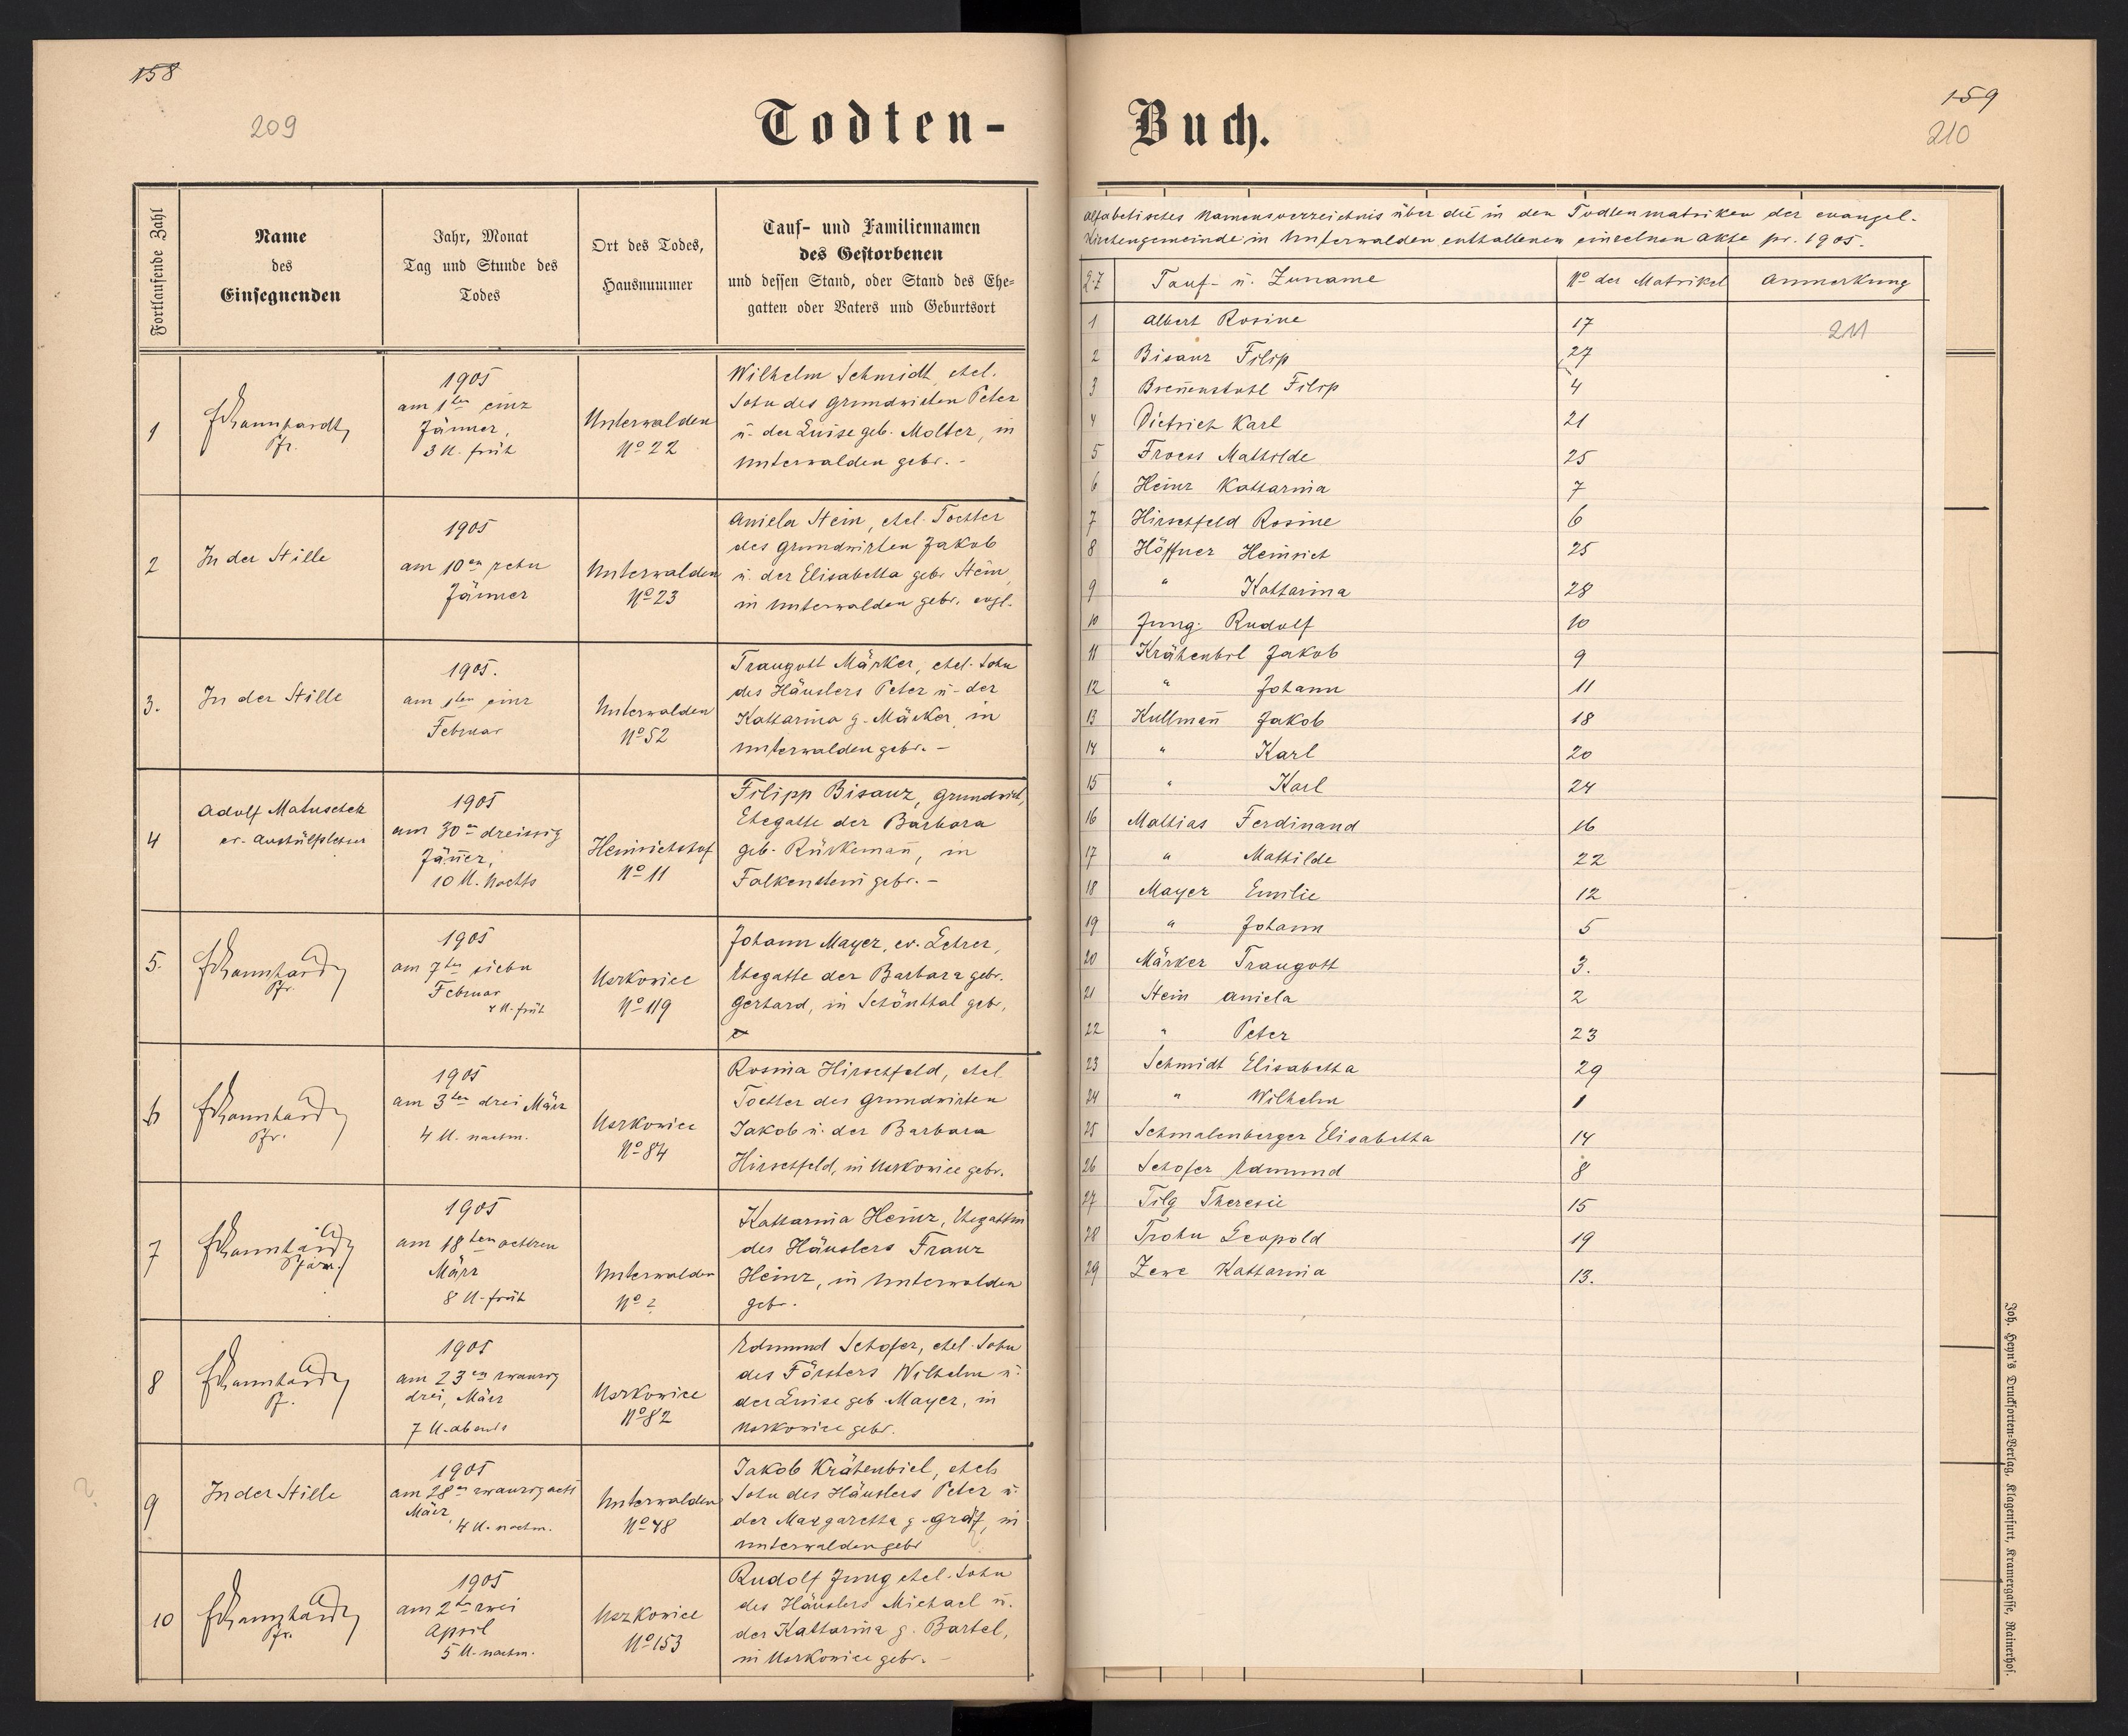 158
209
Todten-
Fortlaufende Zahl
Name
des
Einsegnenden
Jahr, Monat
Tag und Stunde des
Todes
Ort des Todes,
Hausnummer
Tauf- und Familiennamen
des Gestorbenen
und dessen Stand, oder Stand des Ehe=
gatten oder Vaters und Geburtsort
1
Pfr.
1905
am 1ten eins
Jänner,
3 U. früh
Unterwalden
No 22
Wilhelm Schmidt, ehel.
Sohn des Grundwirten Peter
u. der Luise geb. Molter, in
Unterwalden gebr. -
2
In der Stille
1905
am 10en zehn
Jänner
Unterwalden
No 23
Aniela Stein, ehel. Tochter
des Grundwirten Jakob
u. der Elisabetha gebr. Stein
in Unterwalden gebr. evgl.
3.
In der Stille
1905.
am 1ten eins
Februar
Unterwalden
No 52
Traugott Märker, ehel. Sohn
des Häuslers Peter u. der
Katharina g. Märker, in
Unterwalden gebr. -
4
Adolf Matuschek
ev. Aushülfslehrer
1905
am 30en dreissig
Jäner,
10 U. Nachts
Heinrichshof
No 11
Filipp Bisanz, Grundwirt,
Ehegatte der Barbara
geb. Rückemañ, in
Falkenstein gebr. -
5.
Pfr.
1905
am 7ten siebn
Februar
4 U. früh
Uszkowice
No 119
Johann Mayer, ev. Lehrer,
Ehegatte der Barbara gebr.
Gerhard, in Schönthal gebr,
6
Pfr.
1905
am 3ten drei März
4 U. nachm.
Uszkowice
No 84
Rosina Hirschfeld, ehel.
Tochter des Grundwirten
Jakob u. der Barbara
Hirschfeld, in Uszkowice gebr.
7
1905
am 18ten achtzen
März
8 U. früh
Unterwalden
No 2
Katharina Heinz, Ehegattin
des Häuslers Franz
Heinz, in Unterwalden
gebr.
8
Pf.
1905
am 23en zwanzig
drei, März
7 U. abends
Uszkowice
No 82
Edmund Schofer, ehel. Sohn
des Försters Wilhelm u.
der Luise geb. Mayer, in
Uszkowice gebr.
9
In der Stille
1905
am 28en zwanzig acht
März
4 U. nachm.
Unterwalden
No 48
Jakob Krähenbiel, ehel.
Sohn des Häuslers Peter u.
der Margaretha g. Gräf, in
Unterwalden gebr
10
Pfr.
1905
am 2ten zwei
April
5 U. nachm.
Uszkowice
No 153
Rudolf Jung ehel. Sohn
des Häuslers Michael u.
der Katharina g. Bartel,
in Uszkowice gebr. -
Buch.
159
210
Alfabetisches Namensverzeichnis über die in den Todtenmatriken der evangel.
Kirchengemeinde in Unterwalden enthaltenen einzelnen Akte pr. 1905.
Tauf- u. Zuname
No der Matrikel
Anmerkung
211
1 Albert Rosine 17
2 Bisanz Filip 27
3 Breñenstuhl Filip 4
4 Dietrich Karl 21
5 Froess Mathilde 25
6 Heinz Katharina 7
7 Hirschfeld Rosine 6
8 Höffner Heinrich 25
9 " Katharina 28
10 Jung Rudolf 10
11 Krähenbil Jakob 9
12 " Johann 11
13 Kullmañ Jakob 18
14 " Karl 20
15 " Karl 24
16 Mathias Ferdinand 16
17 " Mathilde 22
18 Mayer Emilie 12
19 " Johann 5
20 Märker Traugott 3.
21 Stein Aniela 2
22 " Peter 23
23 Schmidt Elisabetha 29
24 " Wilhelm 1
25 Schmalenberger Elisabetha 14
26 Schofer Edmund 8
27 Tilg Theresie 15
28 Trohn Leopold 19
29 Zewe Katharina 13.
Joh. Heyn's Drucksorten=Verlag, Klagenfurt, Kramergasse, Rainerhof.